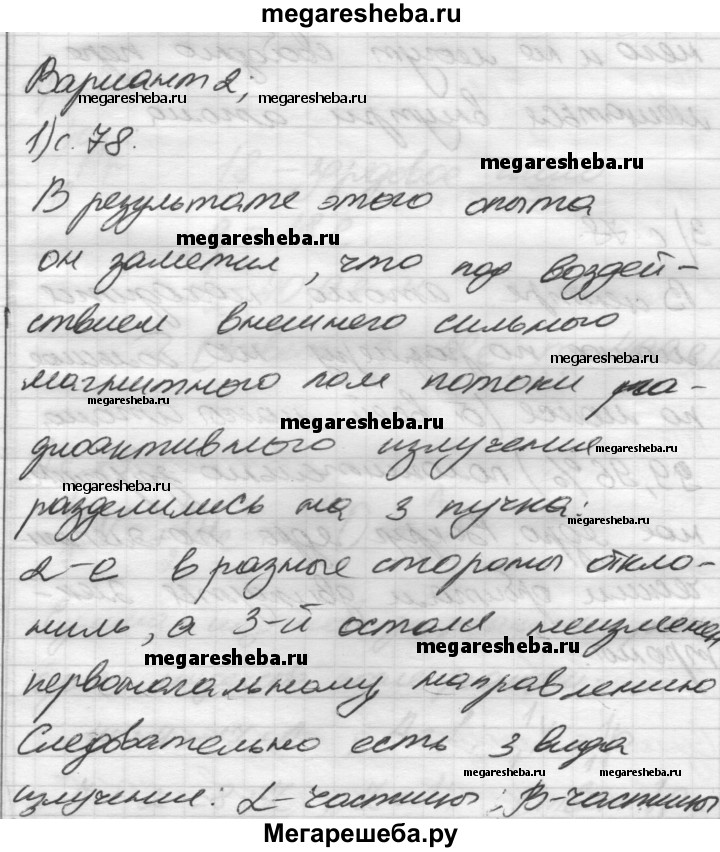 megaresheba.ru
Вариант 2;
megaresheba.ru megaresheba.ru
1) с. 78.
megaresheba.ru
В результате этого опыта
megaresheba.ru
он заметил, что под воздей-
ствием внешнего сильного
megaresheba.ru
магнитного поля потоки ра-
megaresheba.ru
megaresheba.ru
диоактивного излучения
megaresheba.ru
megaresheba.ru
разделились на 3 пучка:
megaresheba.ru
2-е в разные стороны откло-
ниль, а 3-й остался неизменен
megaresheba.ru
megaresheba.ru
первоначальному направлению
Следовательно есть 3 вида
megaresheba.ru megaresheba.ru
излучения: α-частицы; β-частицы
Мегарешеба.ру